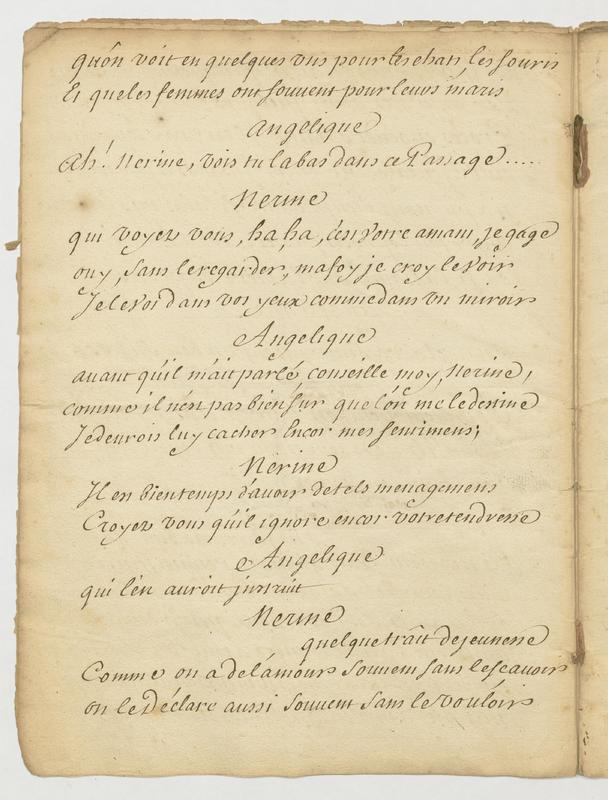 qu'on voit en quelques uns pour les chats, les souris
Et que les femmes ont souvent pour leurs maris
Angelique
Ah! Nerine, vois tu la bas dans ce Passage.....
Nerine
qui voyez vous, ha ha, c'est votre amant, je gage
ouy, sans le regarder, ma foy je croy le voir
Je le voi dans vos yeux comme dans un miroir
Angelique
avant qu'il m'ait parlé conseille moy, Nerine,
comme il n'est pas bien sur que l'on me le destine
Je devrois luy cacher Encor mes sentimens;
Nerine
Il est bien temps d'avoir de tels menagemens
Croyez vous qu'il ignore encor votre tendresse
Angelique
qui l'en auroit instruit
Nerine
quelque trait de jeunesse
Comme on a de l'amour souvent sans le scavoir
on le Déclare aussi souvent sans le vouloir